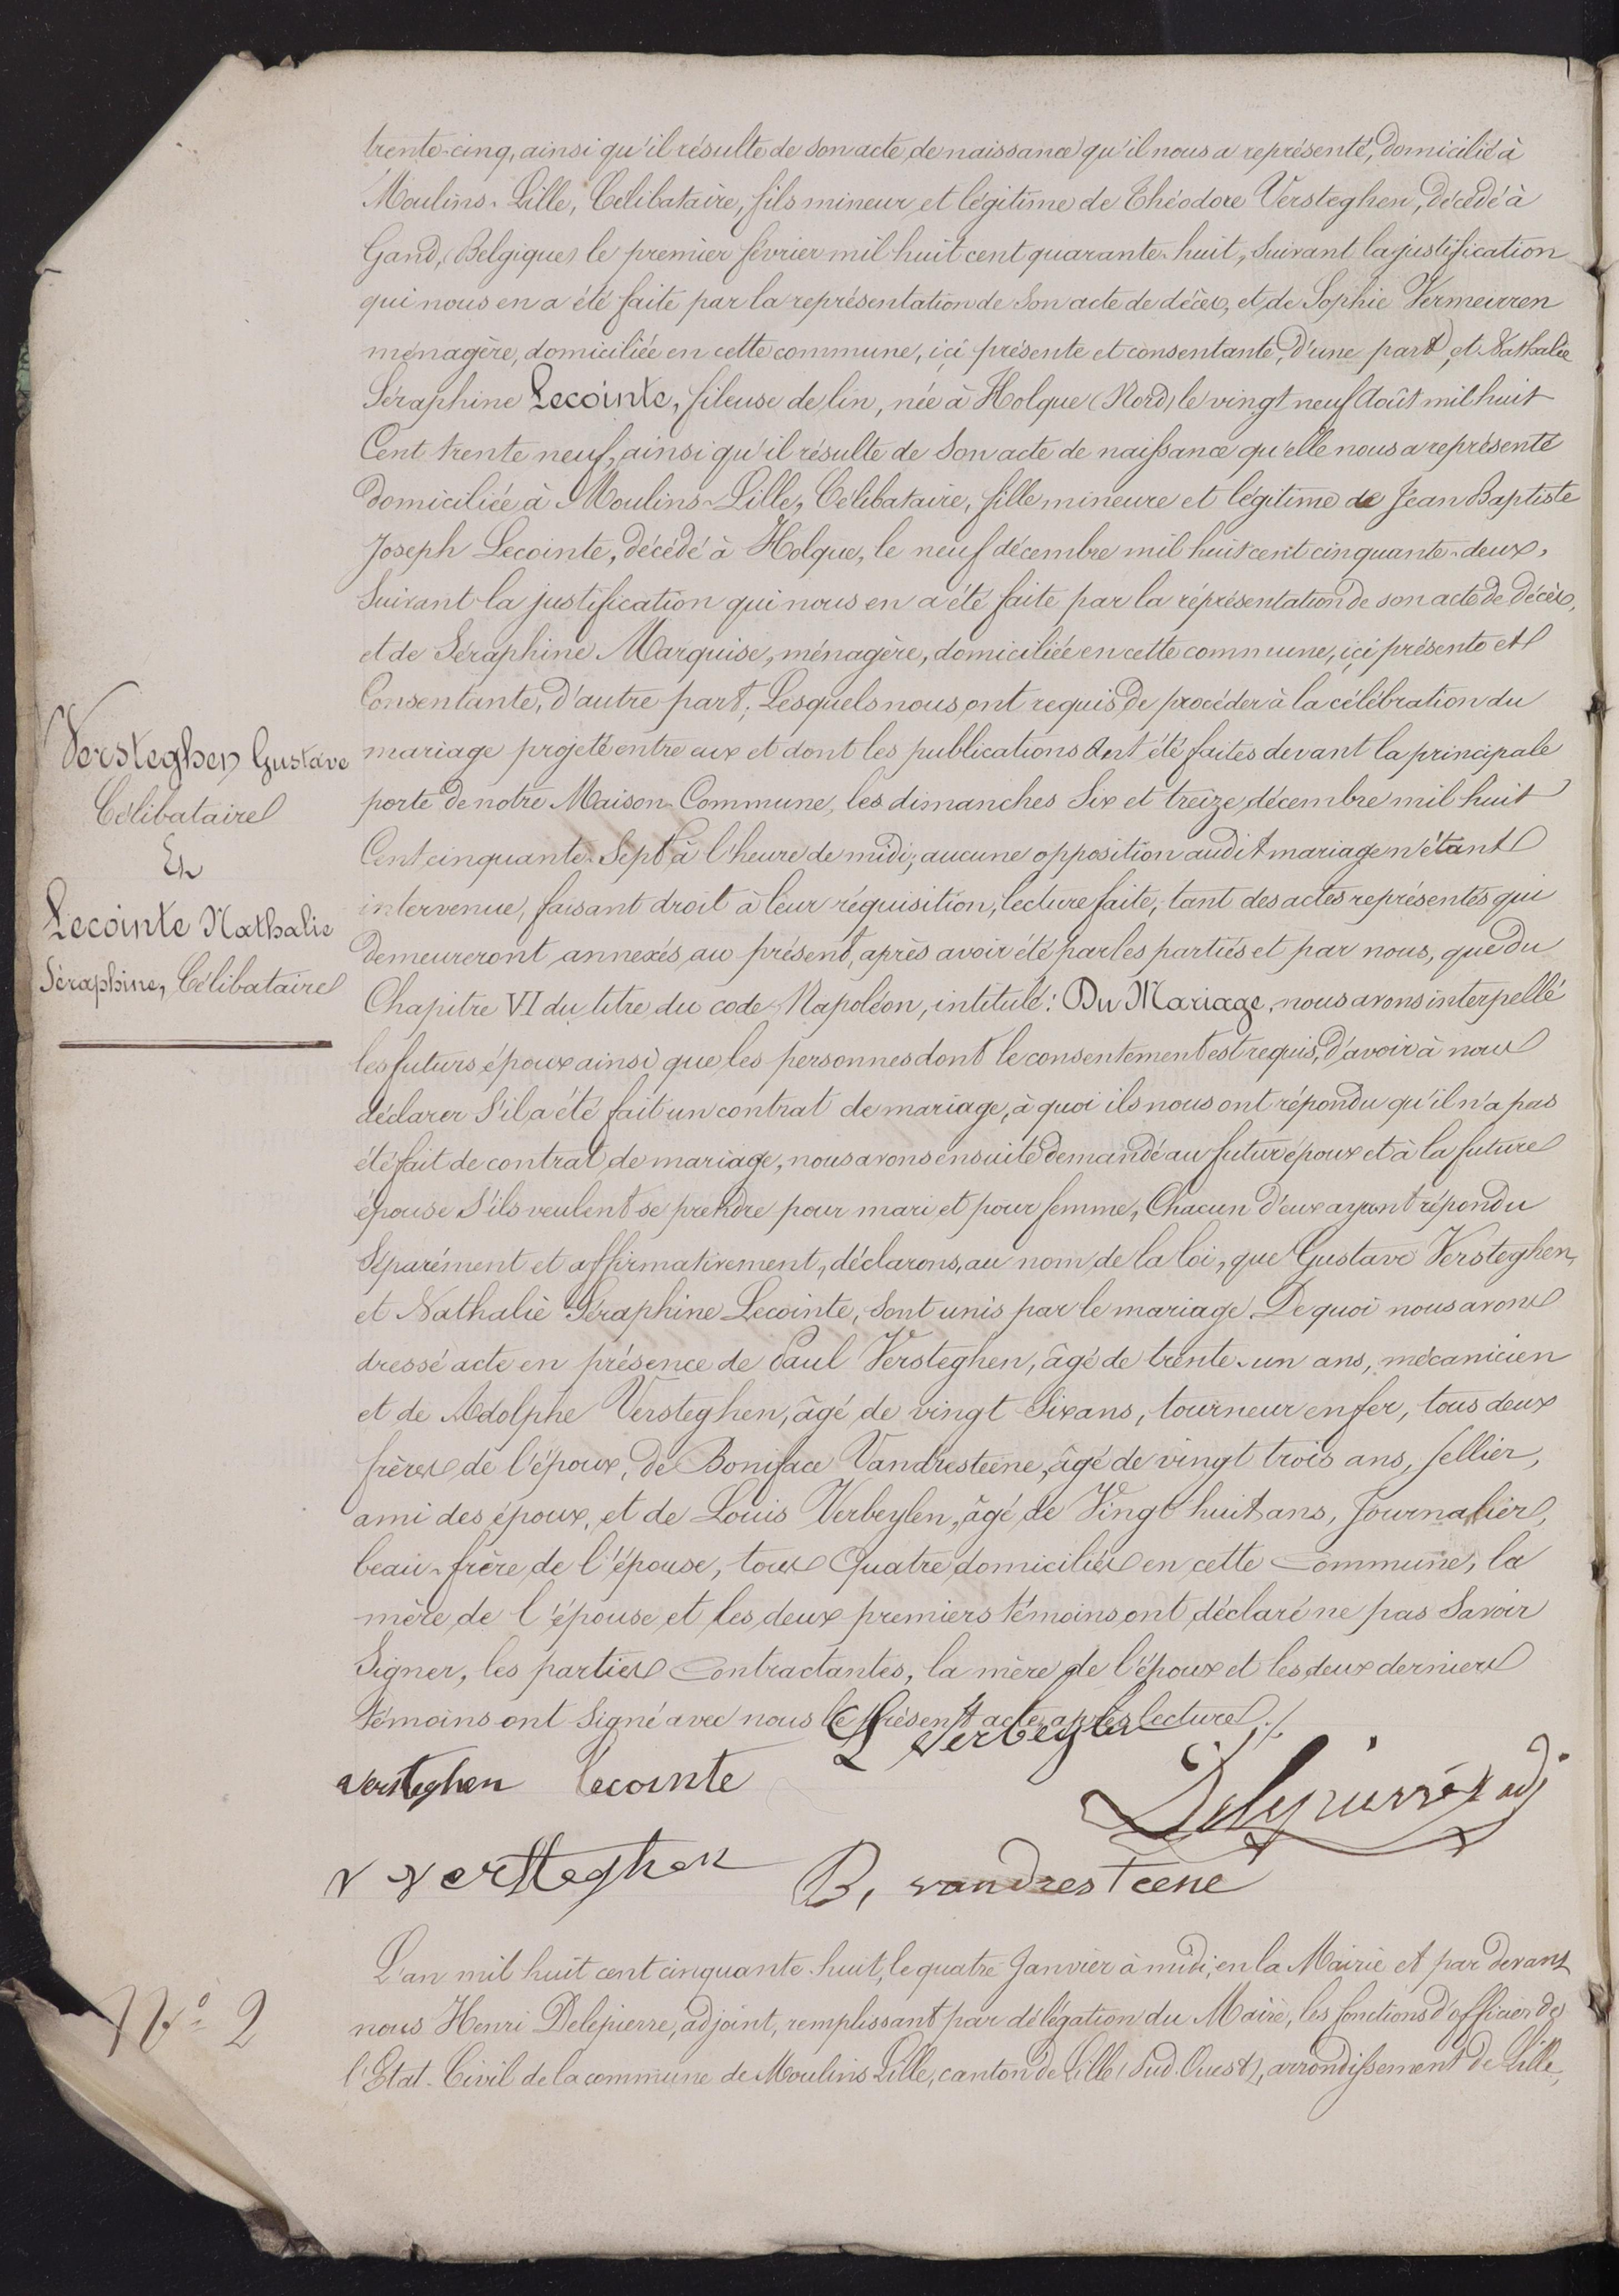 trente-cinq, ainsi qu'il résulte de son acte de naissance qu'il nous a représenté, domicilié à
Moulins-Lille, Célibataire, fils mineur et légitime de Théodore Versteghen, décédé à
Gand, (Belgique) le premier février mil huit cent quarante-huit, suivant la justification
qui nous en a été faite par la représentation de son acte de décès, et de Sophie Vermeirren
ménagère, domiciliée en cette commune, ici présente et consentante, d'une part, et Nathalie
Séraphine Lecointe, fileuse de lin, née à Holque (Nord) le vingt neuf Août mil huit
Cent trente neuf, ainsi qu'il résulte de son acte de naissance qu'elle nous a représenté
domiciliée à Moulins-Lille, Célibataire, fille mineure et légitime de Jean Baptiste
Joseph Lecointe, décédé à Holque, le neuf décembre mil huit cent cinquante-deux,
Suivant la justification qui nous en a été faite par la réprésentation de son acte de décès,
et de Séraphine Marquise, ménagère, domiciliée en cette commune, ici présente et
Consentante, d'autre part; Lesquels nous ont requis de procéder à la célébration du
mariage projeté entre eux et dont les publications ont été faites devant la principale
porte de notre Maison-Commune, les dimanches Six et treize décembre mil huit
Cent cinquante-Sept à l'heure de midi; aucune opposition audit mariage n'étant
intervenue, faisant droit à leur réquisition, lecture faite, tant des actes représentés qui
demeureront annexés au présent, après avoir été par les parties et par nous, que du
Chapitre VI du titre du code Napoléon, intitulé: Du Mariage, nous avons interpellé
les futurs époux ainsi que les personnes dont le consentement est requis, d'avoir à nous
déclarer s'il a été fait un contrat de mariage, à quoi ils nous ont répondu qu'il n'a pas
été fait de contrat de mariage, nous avons ensuite demandé au futur époux et à la future
épouse s'ils veulent se prendre pour mari et pour femme, Chacun d'eux ayant répondu
Séparément et affirmativement, déclarons, au nom de la loi, que Gustave Versteghen,
et Nathalie Séraphine Lecointe, sont unis par le mariage. De quoi nous avons
dressé acte en présence de Paul Versteghen, âgé de trente-un ans, mécanicien
et de Adolphe Versteghen, âgé de vingt Six ans, tourneur en fer, tous deux
frères de l'époux, de Boniface Vandresteene, âgé de vingt trois ans, sellier,
ami des époux, et de Louis Verbeylen, âgé de Vingt huit ans, Journalier,
beau-frère de l'épouse, tous Quatre domiciliés en cette Commune, la
mère de l'épouse et les deux premiers témoins ont déclaré ne pas Savoir
Signer, les parties Contractantes, la mère de l'époux et les deux derniers
témoins ont Signé avec nous le présent acte après lecture ./.
Versteghen Gustave
Célibataire
Et
Lecointe Nathalie
Séraphine, Célibataire
L Verbeylen
versteghen lecointe
Delepierre adj
v versteghen B, vandresteene
N° 2
L'an mil huit cent cinquante-huit, le quatre Janvier à midi, en la Mairie et par devant
nous Henri Delepierre, adjoint, remplissant par délégation du Maire, les fonctions d'officier de
l'Etat-Civil de la commune de Moulins Lille, canton de Lille (Sud-Ouest), arrondissement de Lille,